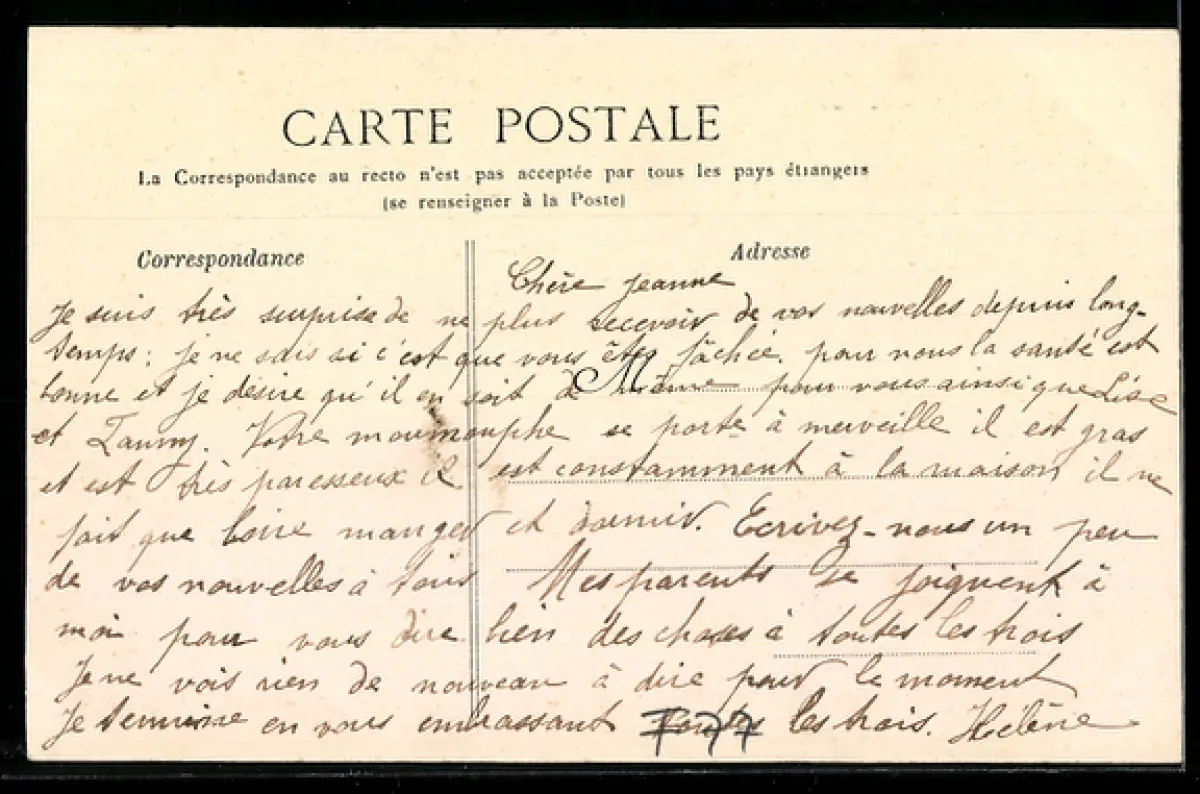 CARTE POSTALE
La Correspondance au recto n'est pas acceptée par tous les pays étrangers
(se renseigner à la Poste)
Correspondance
Adresse
Chère Jeanne
Je suis très surprise de ne plus recevoir de vos nouvelles depuis long-
temps; je ne sais si c'est que vous êtes fâchée. pour nous la santé est
bonne et je désire qu'il en soit de Même pour vous ainsi que Lise
et Fanny. Votre moumouphe se porte à merveille il est gras
et est très paresseux il est constamment à la maison il ne
fait que boire manger et dormir. Ecrivez-nous un peu
de vos nouvelles à tous Mes parents se joignent à
moi pour vous dire bien des choses à toutes les trois
Je ne vois rien de nouveau à dire pour le moment
Je termine en vous embrassant toutes les trois. Hélène